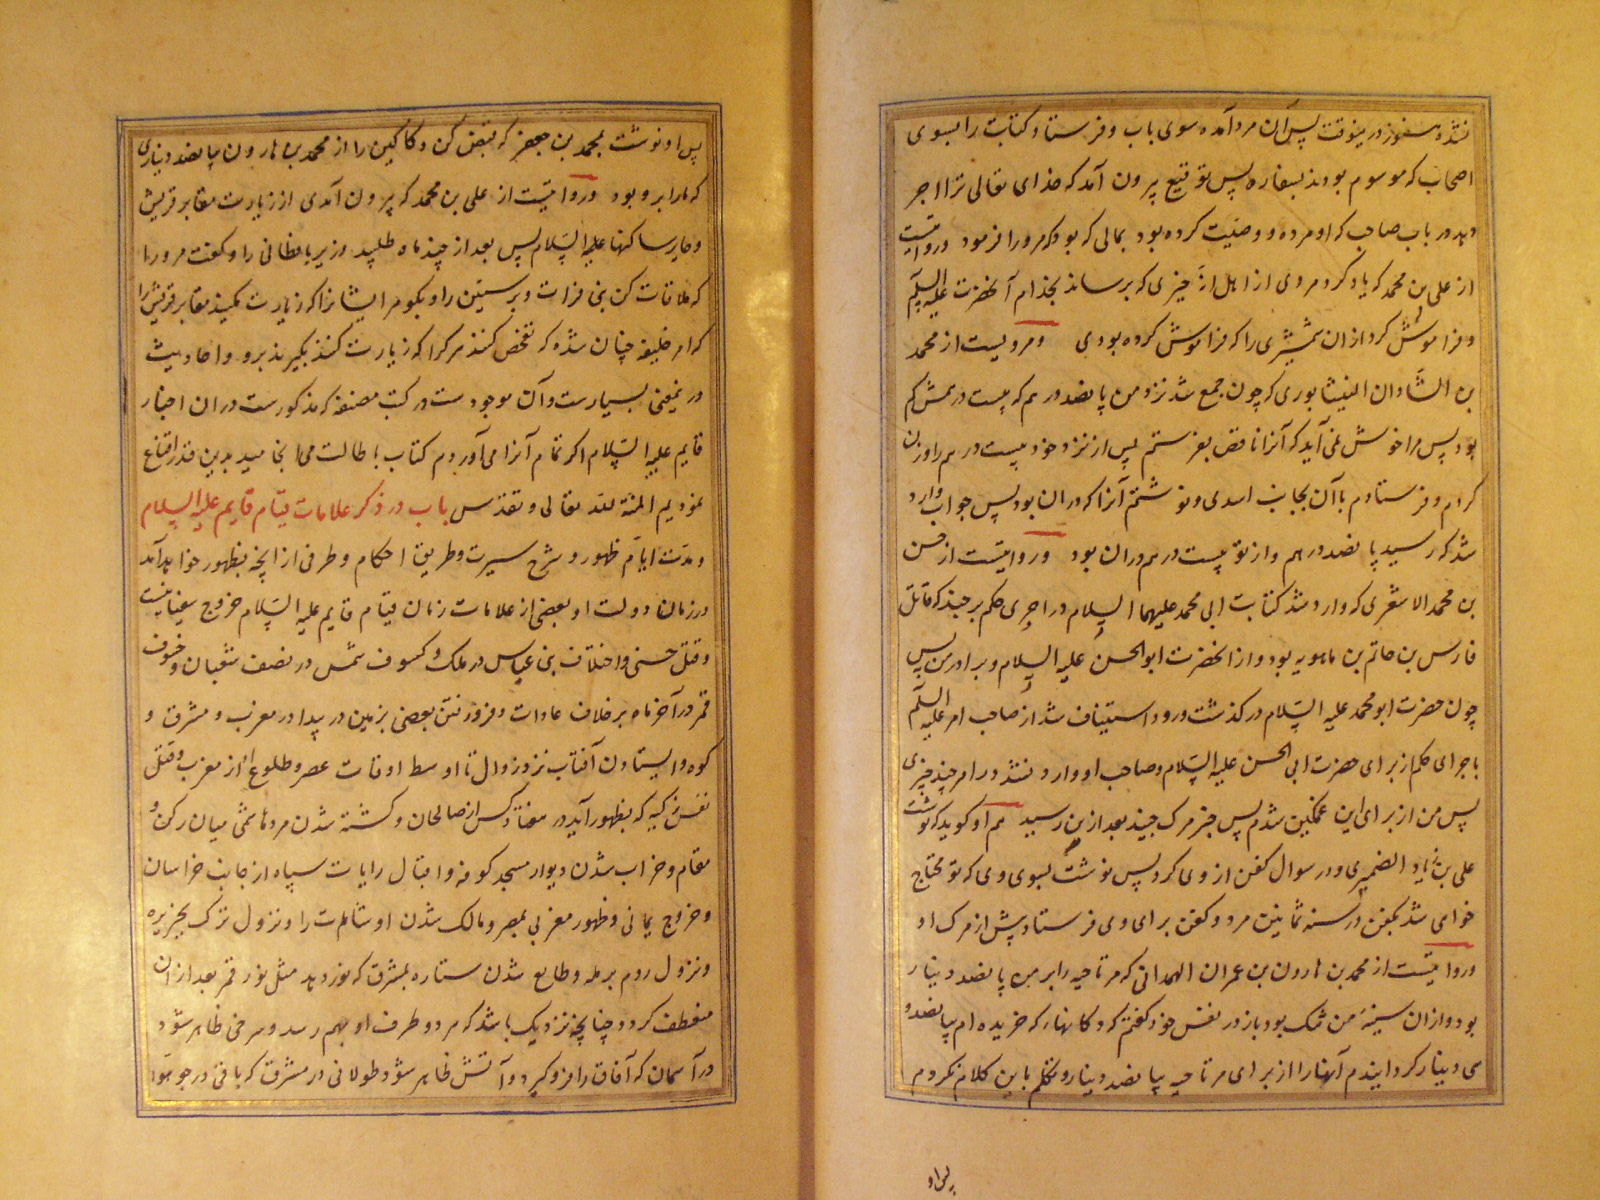 نشد هنوز درینوقت پس آن مرد آمد سوی باب و فرستاد کتابت را بسوی
اصحاب که موسوم بودند بسفاره پس توقیع بیرون آمد که خدای تعالی ترا اجر
دهد در باب صاحب که او مرده و وصیت کرده بود بمالی که بود که مرو را فرمود و روایتست
از علی بن محمد که یاد کرد مردی از اهل چیزی که برساند بخدام آنحضرت علیه السلام
و فراموش کرد از آن شمشیری را که فراموش کرده بودی و مرویست از محمد
بن الشادان النیشابوری که چون جمع شد نزد من پانصد درهم که بیست درمش کم
بود پس مرا خوش نمی آید که آنرا ناقص بفرستم پس از نزد خود بیست درهم را وزن
کردم و فرستادم با آن بجانب اسدی و نوشتم آنرا که در آن بود پس جواب وارد
شد که رسید پانصد درهم و از تو بیست درهم در آن بود و روایتست از حسن
بن محمد الاشعری که وارد شد کتابت ابی محمد علیهما السلام در اجرای حکم بر جنید که قاتل
فارس بن حاتم بن ماهویه بود و از آنحضرت ابوالحسن علیه السلام و برادر من پس
چون حضرت ابو محمد علیه السلام در گذشت ورود استیناف شد از صاحب امر علیه السلام
باجرای حکم از برای حضرت ابی الحسن علیه السلام و صاحب او وارد نشد در امر جنید چیزی
پس من از برای این غمگین شدم پس خبر مرگ جنید بعد ازین رسید هم او گوید که نوشت
علی بن زیاد الضمیری و در سوال کفن از وی کرد پس نوشت بسوی وی که تو محتاج
خواهی شد بکفن در سنه ثمانین مرد و کفن برای وی فرستاد پیش از مرگ او
و روایتست از محمد بن هارون بن عمران الهمدانی که مر ناحیه را بر من پانصد دینار
بود و از آن سینهٔ من تنگ بود باز در نفس خود گفتم که دکانها را که خریده ام بپانصد و
سی دینار گردانیدم آنها را از برای مر ناحیه بپانصد دینار و تکلم باین کلام نکردم
پس او
پس او نوشت بمحمد بن جعفر که قبض کن دکاکین را از محمد بن هارون بپانصد دیناری
که ما را برو بود و روایتست از علی بن محمد که بیرون آمدی از زیارت مقابر قریش
و علیه السلام پس بعد از چند ماه طلبید وزیر باقطانی را و گفت مرورا
که ملاقات کن بنی فرات و برستین را و بگو مر ایشانرا که زیارت نکنید مقابر قریش را
که امر خلیفه چنان شده که تفحص کنند هر کرا که زیارت کنند بگیرند برو و احادیث
درینمعنی بسیارست و آن موجودست در کتب مصنفه که مذکورست در آن اخبار
قایم علیه السلام اگر تمام آنرا می آوردم کتاب باطالت می انجامید بدین قدر اقناع
نمودیم المنة لله تعالی و تقدس باب در ذکر علامات قیام قایم علیه السلام
و مدت ایام ظهور و شرح سیرت و طریق احکام و طرفی از آنچه بظهور خواهد آمد
در زمان دولت او بعضی از علامات زمان قیام قایم علیه السلام خروج سفیانیست
و قتل حسنی و اختلاف بنی عباس در ملک و کسوف شمس در نصف شعبان و خسوف
قمر در آخر ماه بر خلاف عادات و فرو رفتن بعضی بزمین در بیدا در مغرب و مشرق و
کوه و ایستادن آفتاب نزد زوال تا اوسط اوقات عصر و طلوع او از مغرب و قتل
نفس زکیه که بظهور آید در هفتاد کس از صالحان و کشته شدن مرد هاشمی میان رکن و
مقام و خراب شدن دیوار مسجد کوفه و اقبال رایات سیاه از جانب خراسان
و خروج یمانی و ظهور مغربی بمصر و مالک شدن او شامات را و نزول ترک بجزیره
و نزول روم برمله و طالع شدن ستاره بمشرق که نور دهد مثل نور قمر بعد از آن
منعطف گردد چنانچه نزدیک باشد که هر دو طرف او بهم رسد و سرخی ظاهر شود
در آسمان که آفاق را فرو گیرد و آتش ظاهر شود طولانی در مشرق که باقی در جو هوا